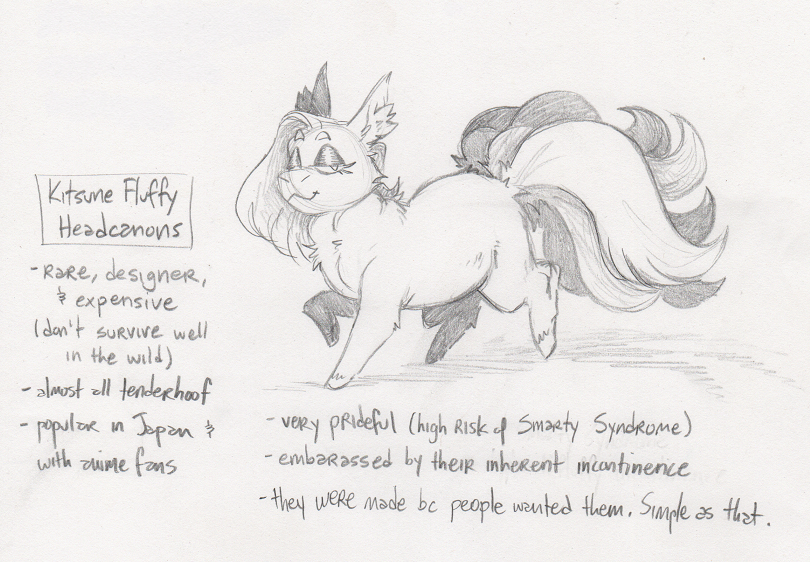 Kitsune Fluffy
Headcanons
- rare, designer,
& expensive
(don't survive well
in the wild)
- almost all tenderhoof
- popular in Japan &
with anime fans
- very prideful (high risk of Smarty Syndrome)
- embarassed by their inherent incontinence
- they were made bc people wanted them. Simple as that.